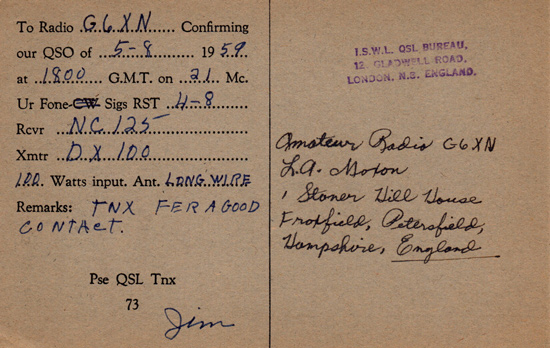 To Radio G6XN Confirming
our QSO of 5-8 1959
at 1800 G.M.T. on 21 Mc.
Ur Fone-CW Sigs RST 4-8
Rcvr NC 125
Xmtr DX 100
100 Watts input. Ant. LONG WIRE
Remarks: TNX FER A GOOD
CONTACT.
Pse QSL Tnx
73
Jim
I.S.W.L. QSL BUREAU,
12, GLADWELL ROAD,
LONDON, N.8. ENGLAND.
Amateur Radio G6XN
L.A. Moxon
1 Stoner Hill House
Froxfield, Petersfield,
Hampshire, England